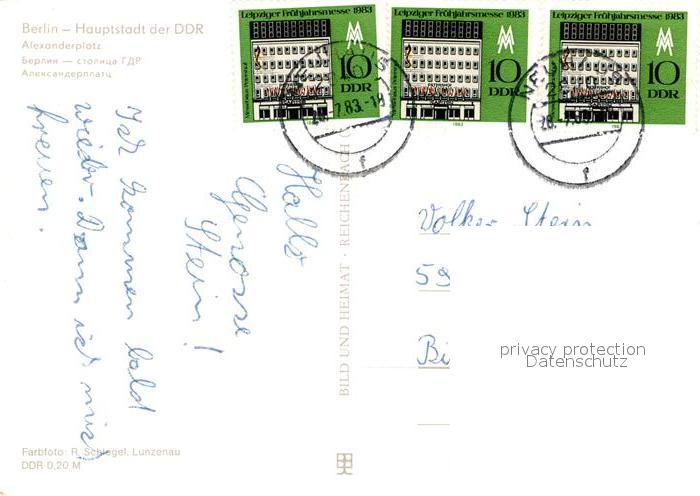 Berlin – Hauptstadt der DDR
Alexanderplatz
Берлин — столица ГДР
Александерплатц
Leipziger Frühjahrsmesse 1983
10
DDR
Leipziger Frühjahrsmesse 1983
10
DDR
Leipziger Frühjahrsmesse 1983
10
DDR
7.83.-19
f
28.7.
f
Hallo
Genosse
Stein!
Ich kommen bald
wieder. Dann ist mich
freuen.
BILD UND HEIMAT · REICHENBACH
Volker Stein
59
Bi
privacy protection
Datenschutz
Farbfoto: R. Schlegel, Lunzenau
DDR 0,20 M